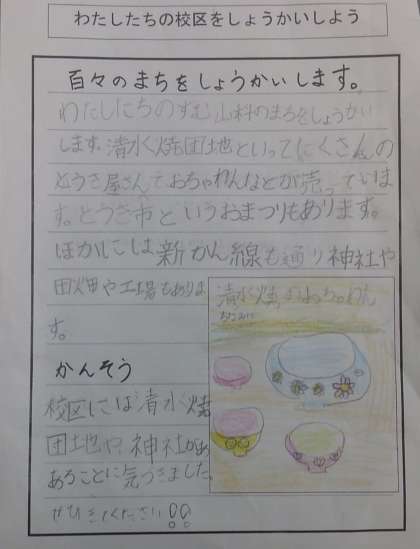 わたしたちの校区をしょうかいしよう
百々のまちをしょうかいします。
わたしたちのすむ山科のまちをしょうかい
します。清水焼団地といってたくさんの
とうき屋さんでおちゃわんなどが売っていま
す。とうき市というおまつりもあります。
ほかには新かん線も通り神社や
田畑や工場もありま
す。
清水焼
かんそう
校区には清水焼
団地や、神社が
あることに気づきました。
ぜひきてください!!